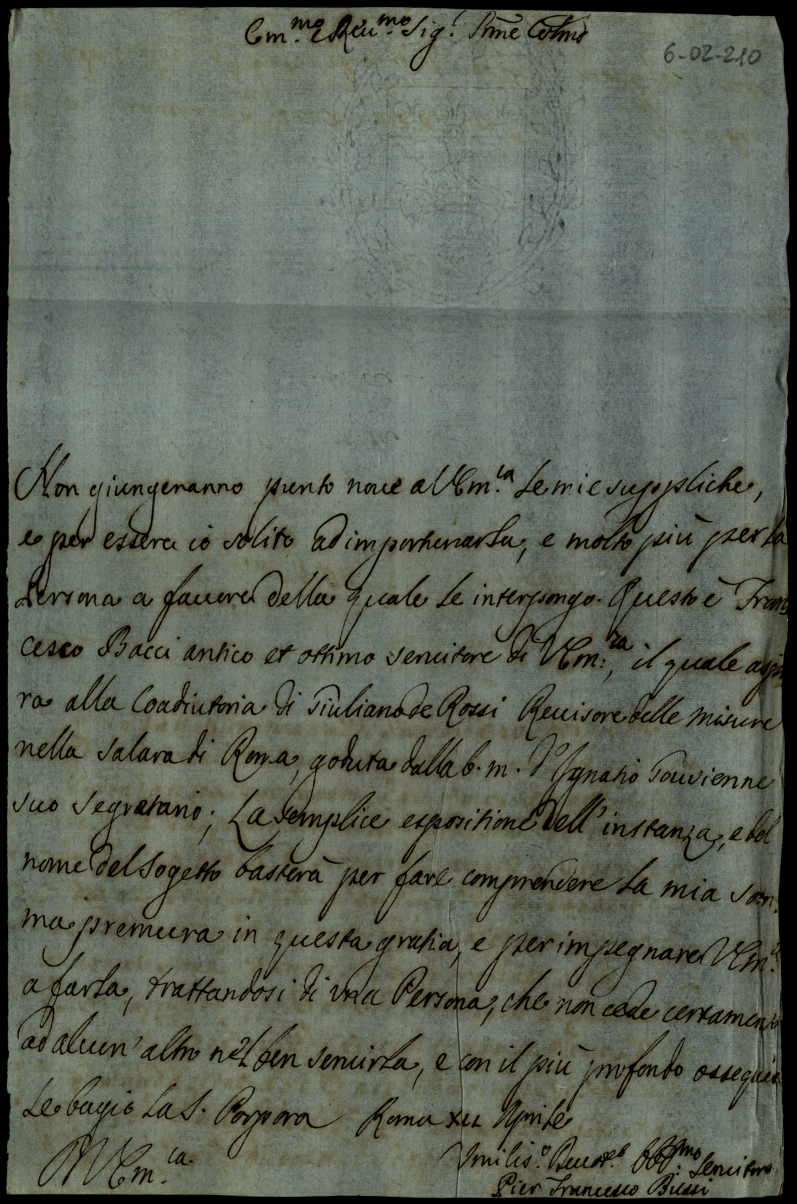 Em.mo e Reu.mo Sig.r Pñe Colmo
6-02-210
Non giungeranno punto noue a VEm.za le mie suppliche,
e per essere io solito ad importunarla, e molto più per la
Persona a fauore della quale le interpongo. Questo è Fran
cesco Bacci antico et ottimo seruitore di VEm.za, il quale aspi
ra alla Coadiutoria di Giuliano de Rossi Reuisore delle misure
nella salara di Roma, goduta dalla b. m. d'Ignatio
suo segretario; La semplice espositione dell'instanza, e del
nome del sogetto basterà per fare comprendere la mia som
ma premura in questa gratia, e per impegnare VEm.za
a farla, trattandosi di una Persona, che non cede certament
ad alcun'altro nel ben seruirla, e con il più profondo ossequio
le bagio la S. Porpora Roma XII Aprile
D VEm.za
Vmilis.o Deuot.o Obb.mo Seruitore
Pier Francesco Bussi